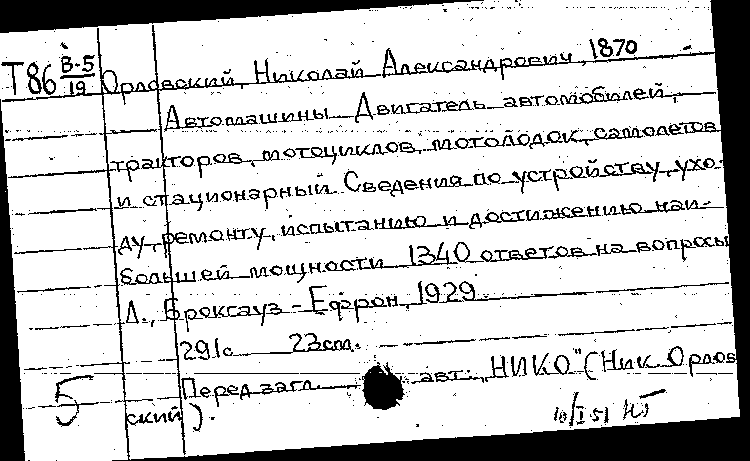 Т86 В-5/19 Орловский, Николай Александрович, 1870 -
Автомашины Двигатель автомобилей,
тракторов, мотоциклов, мотолодок, самолетов
и стационарный. Сведения по устройству, ухо-
ду, ремонту, испытанию и достижению наи-
большей мощности 1340 ответов на вопросы
Л., Брокгауз-Ефрон, 1929.
291с 23см.
Перед загл. авт.: „НИКО" (Ник. Орлов
5 ский).
10/I 51